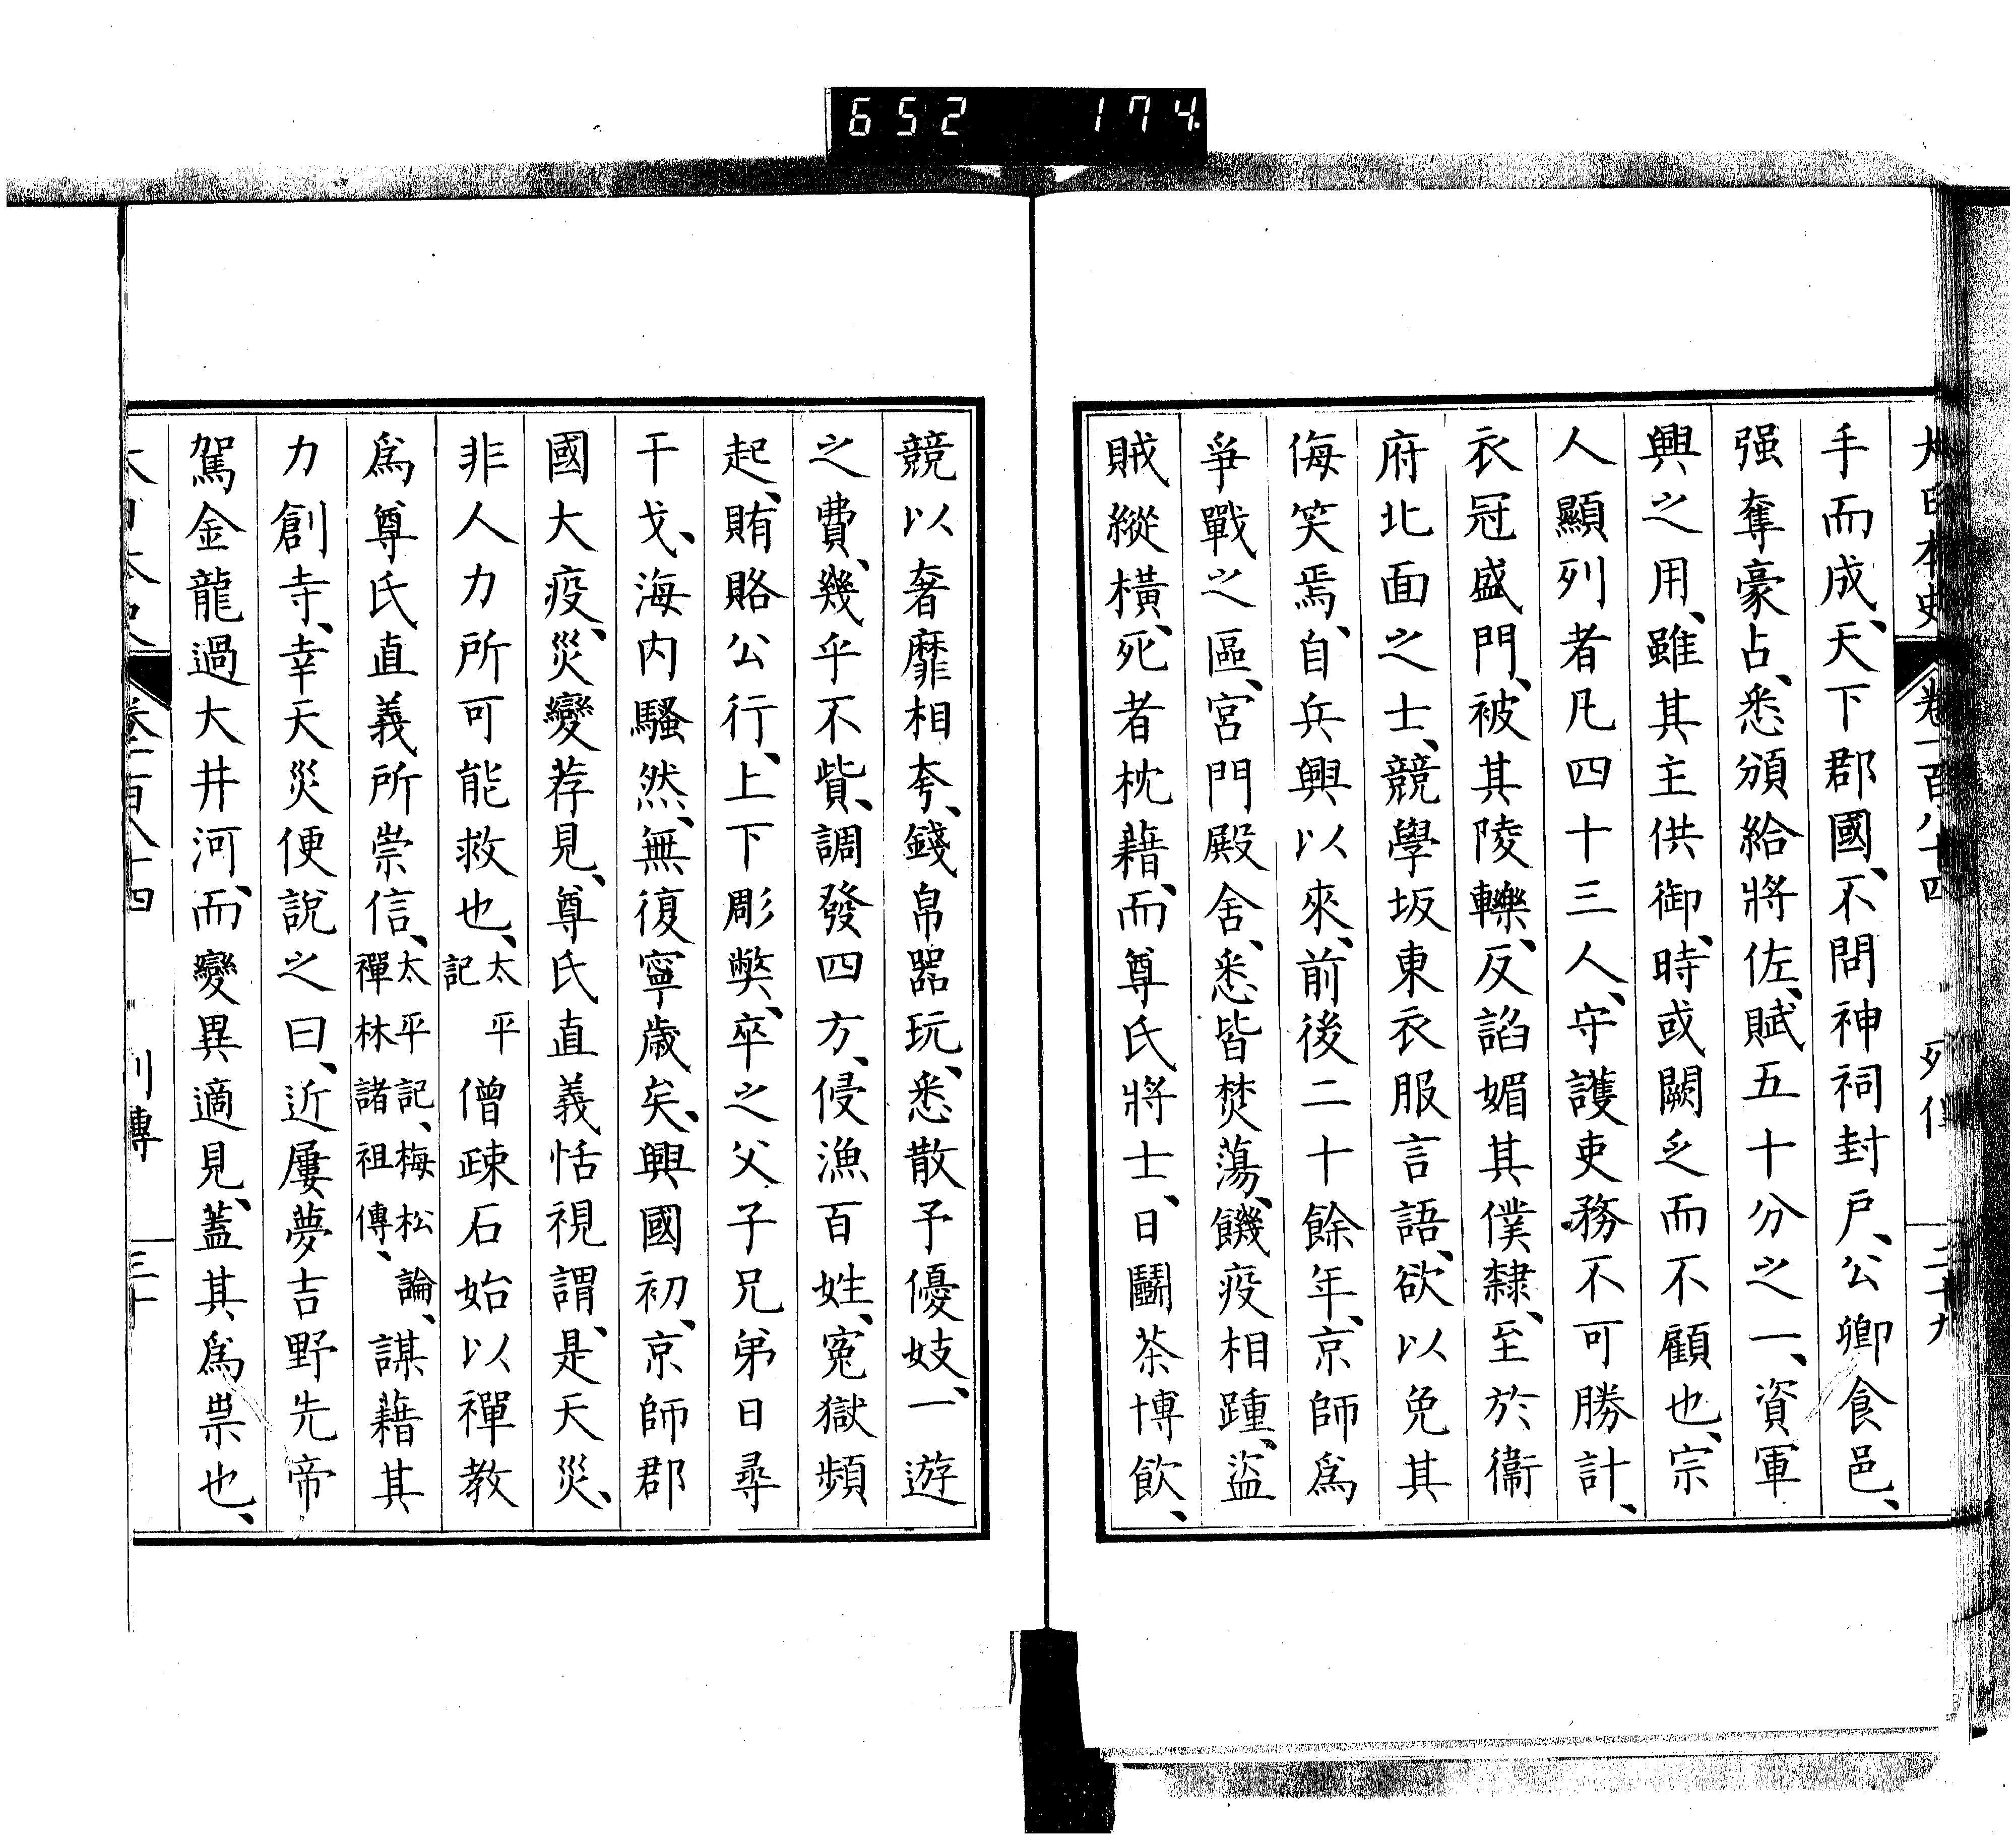 652 174
大日本史 卷一百八十四 列傳 二十九
手而成、天下郡國、不問神祠封戸、公卿食邑、
强奪豪占、悉頒給將佐、賦五十分之一、資軍
興之用、雖其主供御、時或闕乏而不顧也、宗
人顯列者凡四十三人、守護吏務不可勝計、
衣冠盛門、被其陵轢、反諂媚其僕隸、至於衞
府北面之士、競學坂東衣服言語、欲以免其
侮笑焉、自兵興以來、前後二十餘年、京師爲
爭戰之區、宮門殿舍、悉皆焚蕩、饑疫相踵、盜
賊縱橫、死者枕藉、而尊氏將士、日鬭茶博飮、
競以奢靡相夸、錢帛噐玩、悉散予優妓、一遊
之費、幾乎不貲、調發四方、侵漁百姓、寃獄頻
起、賄賂公行、上下彫弊、卒之父子兄弟日尋
干戈、海内騷然、無復寧歲矣、興國初、京師郡
國大疫、災變荐見、尊氏直義恬視謂、是天災、
非人力所可能救也、太平記 僧疎石始以禪教
爲尊氏直義所崇信、太平記、梅松論、禪林諸祖傳、謀藉其
力創寺、幸天災便說之曰、近屢夢吉野先帝
駕金龍過大井河、而變異適見、蓋其爲祟也、
大日本史 卷一百八十四 列傳 三十